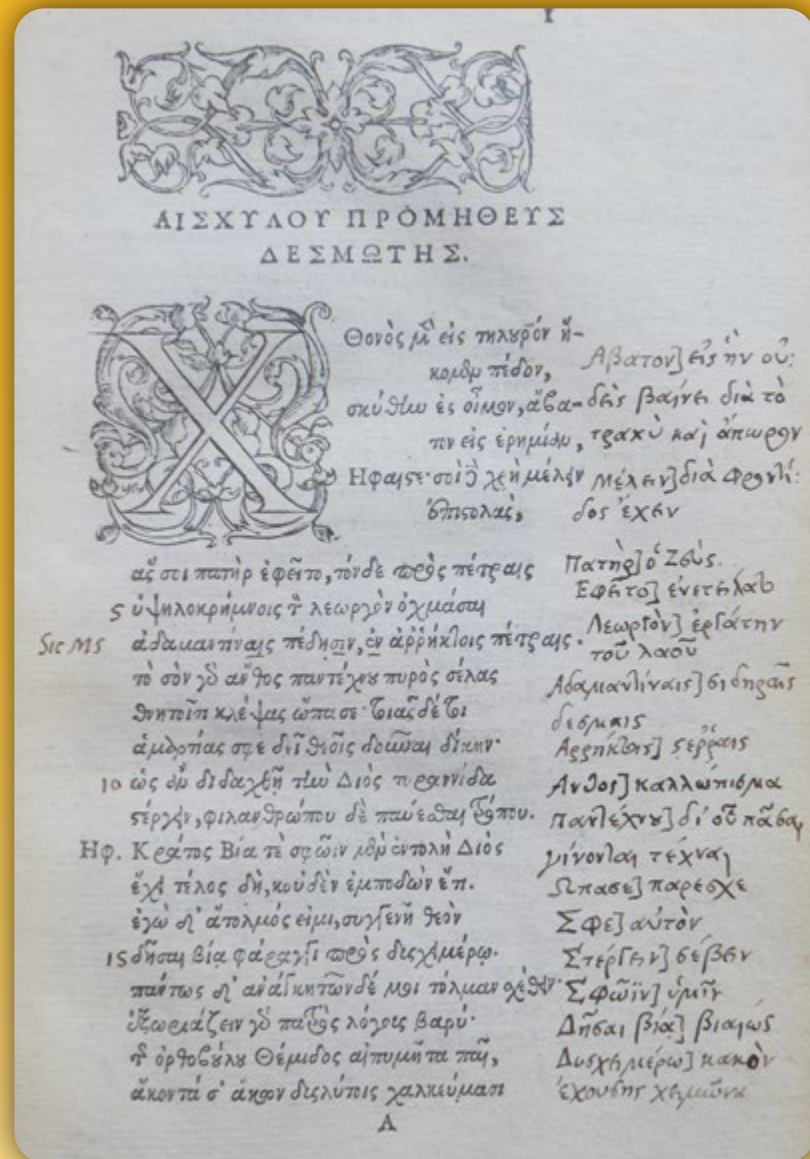 I
ΑΙΣΧΥΛΟΥ ΠΡΟΜΗΘΕΥΣ
ΔΕΣΜΩΤΗΣ.
ΧΘονὸς μὲν εἰς τηλουρὸν ἥ-
κομεν πέδον,
σκύθην ἐς οἶμον, ἄβα-
τον εἰς ἐρημίαν,
Ηφαιστε· σοὶ δὲ χρὴ μέλειν
ἐπιστολὰς,
ἅς σοι πατὴρ ἐφεῖτο, τόνδε πρὸς πέτραις
5 ὑψηλοκρήμνοις τὸν λεωργὸν ὀχμάσαι
Sic MS ἀδαμαντίναις πέδησιν, ἐν ἀρρήκτοις πέτραις.
τὸ σὸν γὰρ ἄνθος παντέχνου πυρὸς σέλας
θνητοῖσι κλέψας ὤπασε· τοιᾶς δέ τοι
ἁμαρτίας σφε δεῖ θεοῖς δοῦναι δίκην·
10 ὡς ἂν διδαχθῇ τὴν Διὸς τυραννίδα
στέργειν, φιλανθρώπου δὲ παύεσθαι τρόπου.
Ηφ. Κράτος Βία τε σφῶιν μὲν ἐντολὴ Διὸς
ἔχει τέλος δὴ, κουδὲν ἐμποδὼν ἔτι.
ἐγὼ δ' ἄτολμός εἰμι, συγγενῆ θεὸν
15 δῆσαι βίᾳ φάραγγι πρὸς δυσχειμέρῳ.
πάντως δ' ἀνάγκη τῶνδέ μοι τόλμαν σχεθεῖν·
ἐξωριάζειν γὰρ πατρὸς λόγους βαρύ·
τῆς ὀρθοβούλου Θέμιδος αἰπυμῆτα παῖ,
ἄκοντά σ' ἄκων δυσλύτοις χαλκεύμασι
A
Αβατον] εἰς ἣν οὐ:
δεὶς βαίνει διὰ τὸ
τραχὺ καὶ ἄπωρον
Μέλειν] διὰ φροντί:
δος ἔχειν
Πατὴρ] ὁ Ζεύς.
Εφεῖτο] ἐνετείλατο
Λεωργὸν] ἐργάτην
τοῦ λαοῦ
Αδαμαντίναις] σιδηραῖς
δεσμαις
Αρρήκτοις] στερραῖς
Ανθος] καλλώπισμα
Παντέχνου] δι' οὗ πᾶσαι
γίνονται τέχναι
Ωπασε] παρέσχε
Σφε] αὐτὸν
Στέργειν] σέβειν
Σφῶϊν] ὑμῖν
Δῆσαι βίᾳ] βιαίως
Δυσχειμέρω] κακὸν
ἐχούσης χειμῶνα